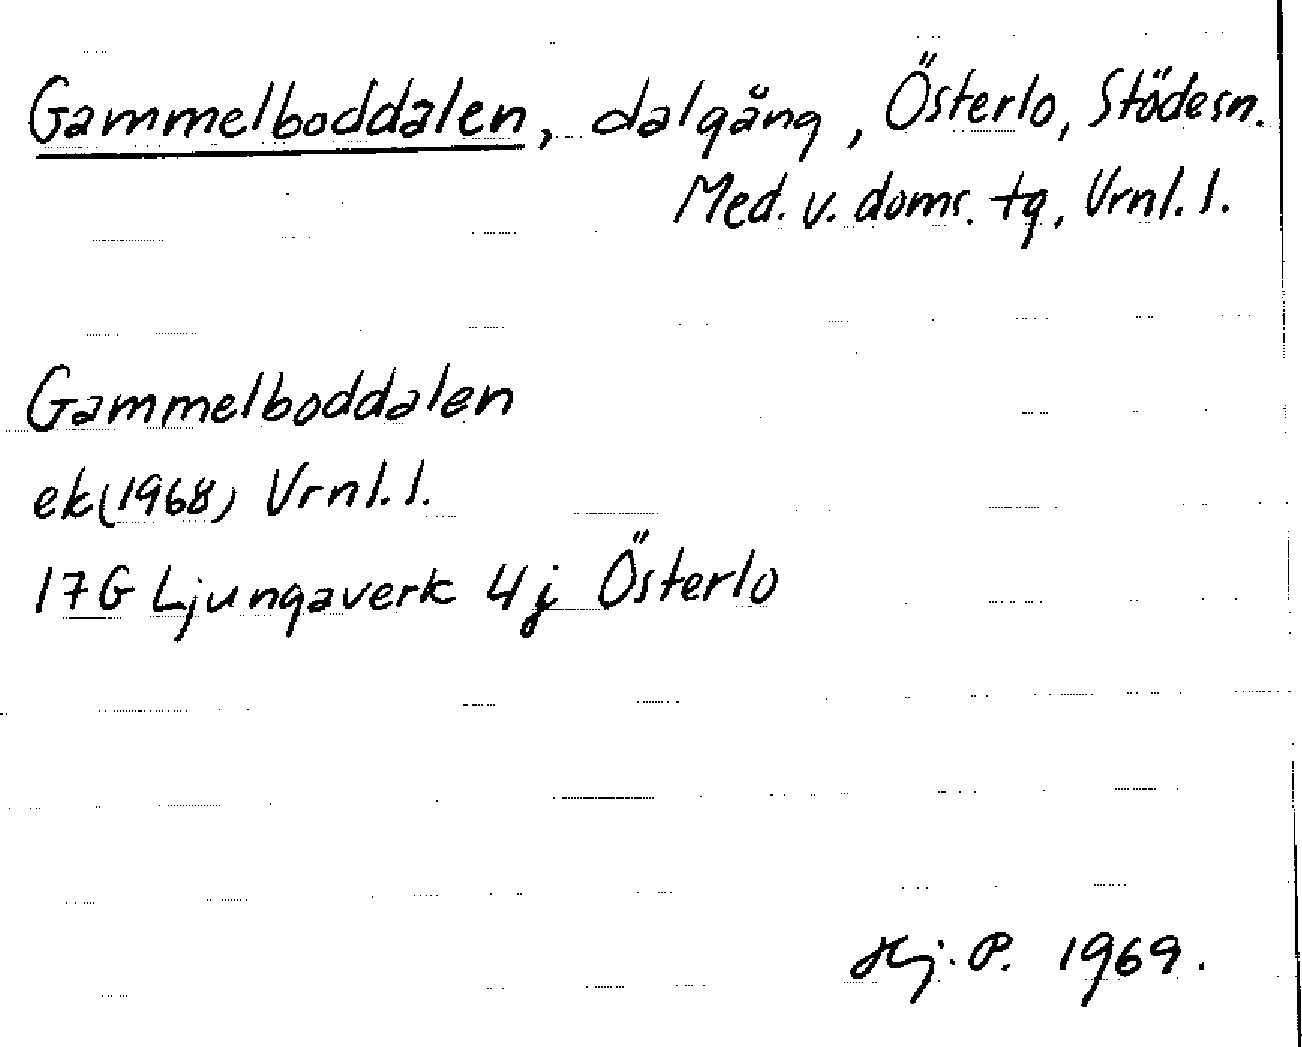 Gammelboddalen, dalgång, Österlo, Stödesn.
Med. v. doms. tg, Vrnl. l.
Gammelboddalen
ek(1968) Vrnl. l.
17G Ljungaverk 4j Österlo
Hj. P. 1969.